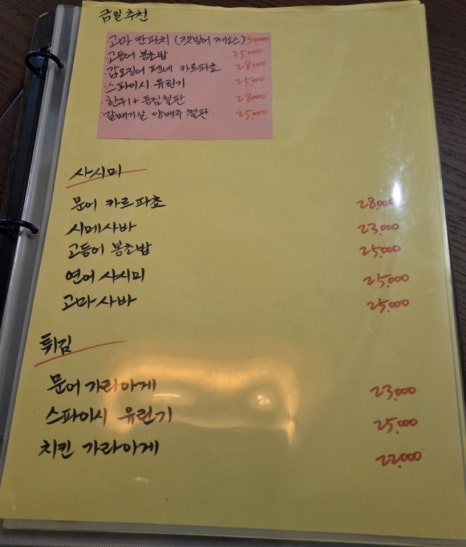 금일추천
고마 깐파치 (잿방어 깨소스) 3,000
고등어 봉초밥 25,000
갑오징어 펜네 카르파쵸 28,000
스파이시 유린기 25,000
한우+등심철판 28,000
갈매기살 양배추 철판 25,000
사시미
문어 카르파쵸 28,000
시메사바 23,000
고등어 봉초밥 25,000
연어 사시미 25,000
고마사바 25,000
튀김
문어 가라아게 23,000
스파이시 유린기 25,000
치킨 가라아게 22,000